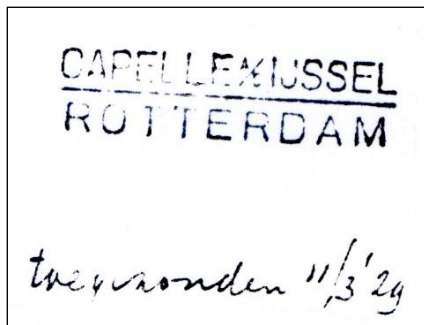 CAPELLE A/D IJSSEL
ROTTERDAM
toegezonden 11/3'29